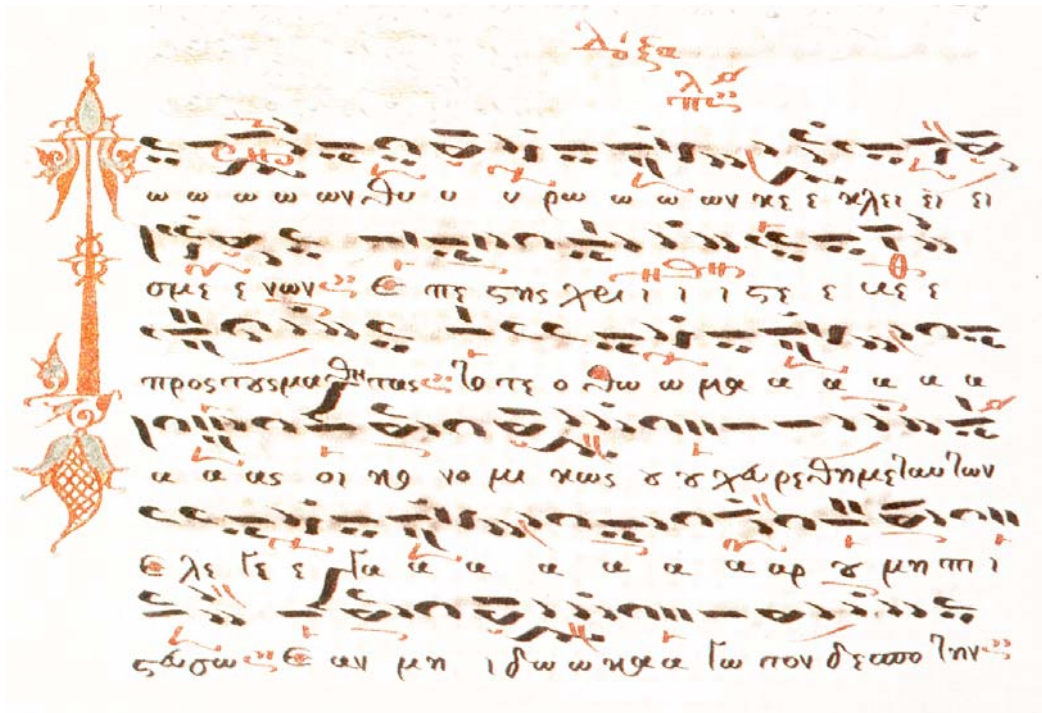 δόξα
ω ω ω ω ων θυ υ υ ρω ω ω ων κε ε κλει ει ει
σμε ε νων Ε πε στης χρι ι ι ι στε ε ε ε
προς τους μαθητας το τε ο θω ω μα α α α α α
α α ας οι κο νο μι κως ου ου χευρεθη μεταυτων
Ε λε γε ε γα α α α α α α αρ ου μη πι ι
στευσω Ε αν μη ι δω ω κα α γω τον δεσποτην